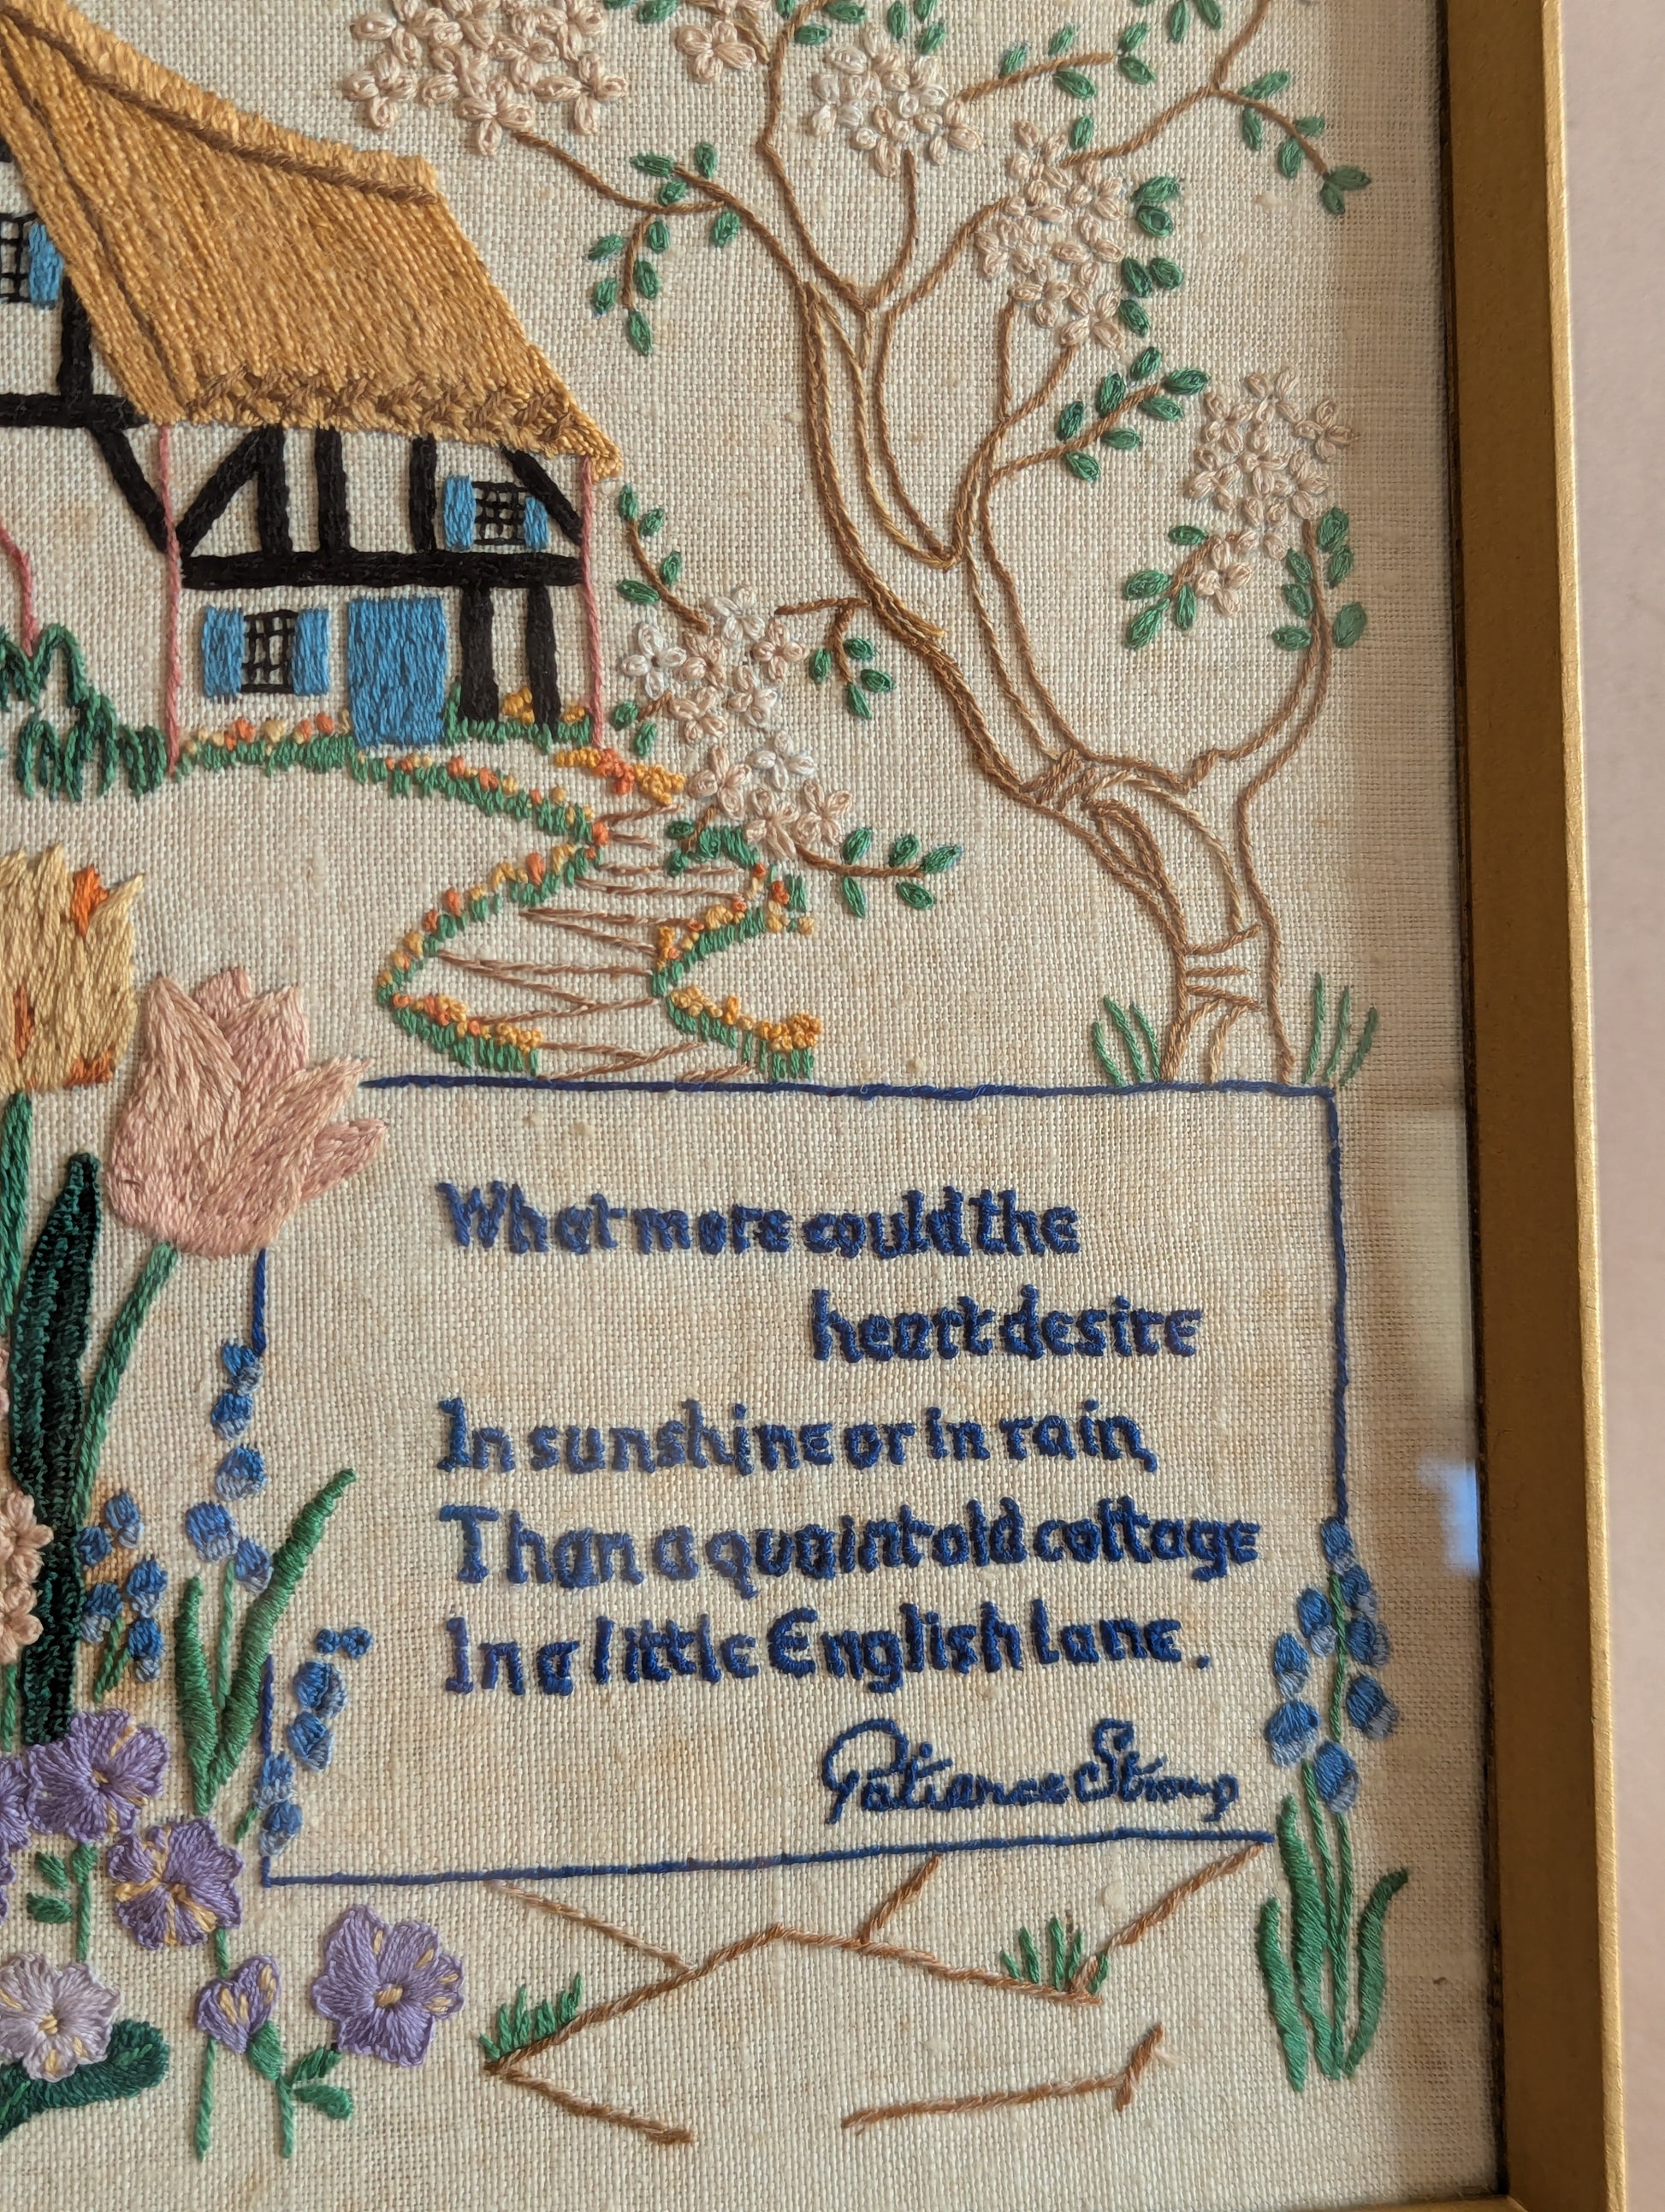 What more could the
heart desire
In sunshine or in rain,
Than a quaint old cottage
In a little English lane.
Patience Strong